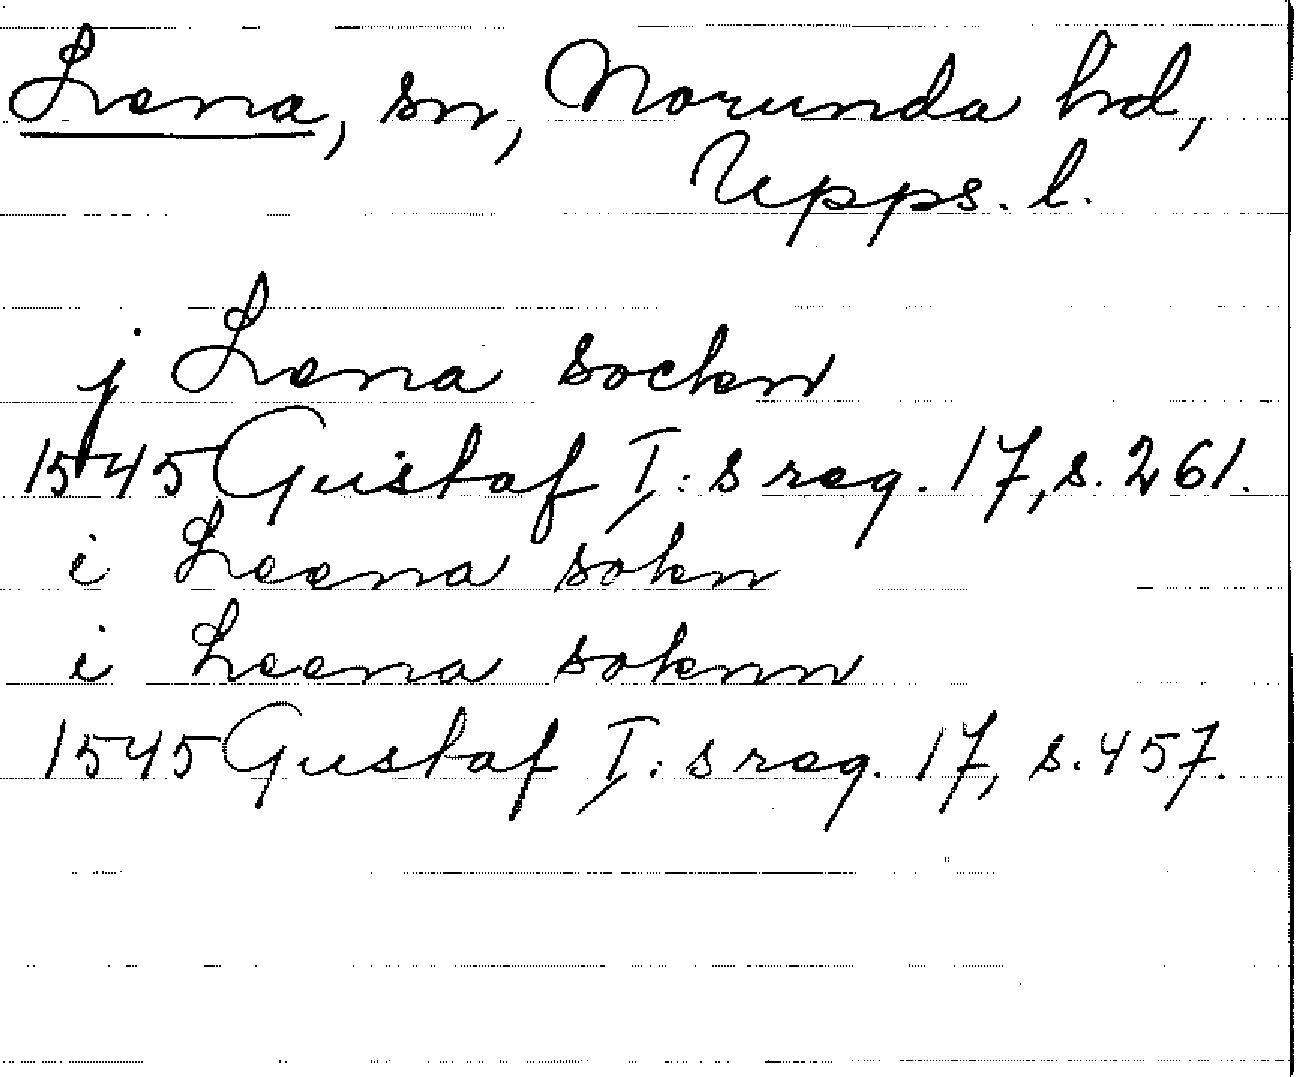 Lena, sn, Norunda hd,
Upps. l.
j Lena sockn
1545 Gustaf I:s reg. 17, s. 261.
i Leena sokn
i Leena soknn
1545 Gustaf I:s reg. 17, s. 457.